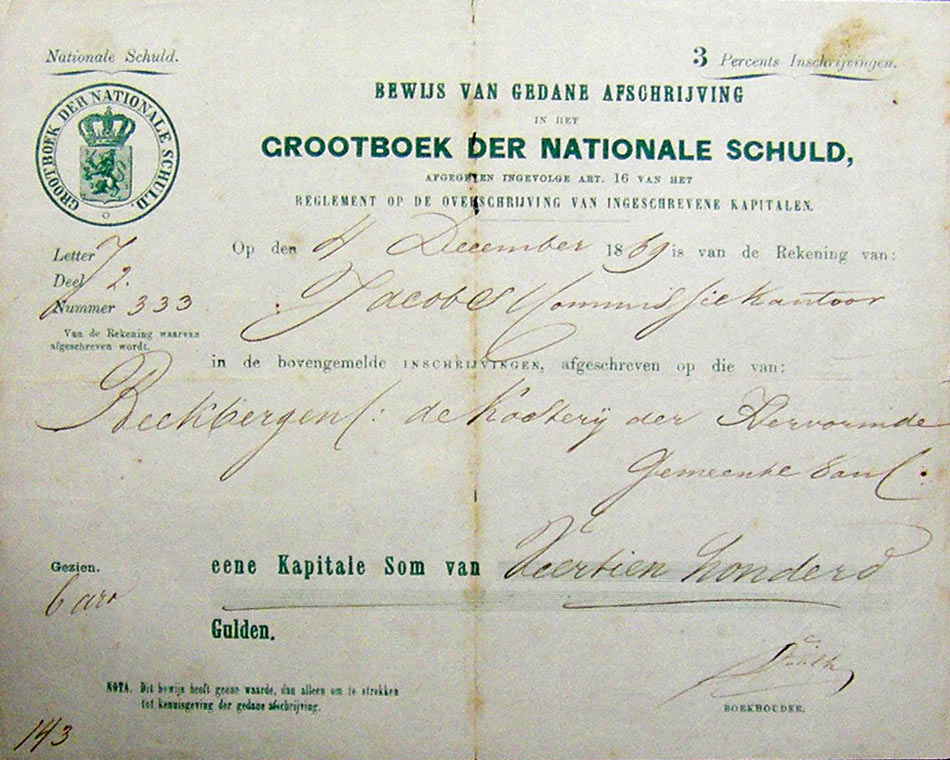 Nationale Schuld.
3 Percents Inschrijvingen.
GROOTBOEK DER NATIONALE SCHULD.
BEWIJS VAN GEDANE AFSCHRIJVING
IN HET
GROOTBOEK DER NATIONALE SCHULD,
AFGEGEVEN INGEVOLGE ART. 16 VAN HET
REGLEMENT OP DE OVERSCHRIJVING VAN INGESCHREVENE KAPITALEN.
Letter J
Deel 2.
Nummer 333
Van de Rekening waarvan
afgeschreven wordt.
Op den 4 December 1869 is van de Rekening van:
Jacobs Commissiekantoor
in de bovengemelde INSCHRIJVINGEN, afgeschreven op die van:
Beekbergen(: de Kosterij der Hervormde
Gemeente van(:
Gezien.
eene Kapitale Som van Veertien honderd
Gulden.
NOTA. Dit bewijs heeft geene waarde, dan alleen om te strekken
tot kennisgeving der gedane afschrijving.
BOEKHOUDER.
143